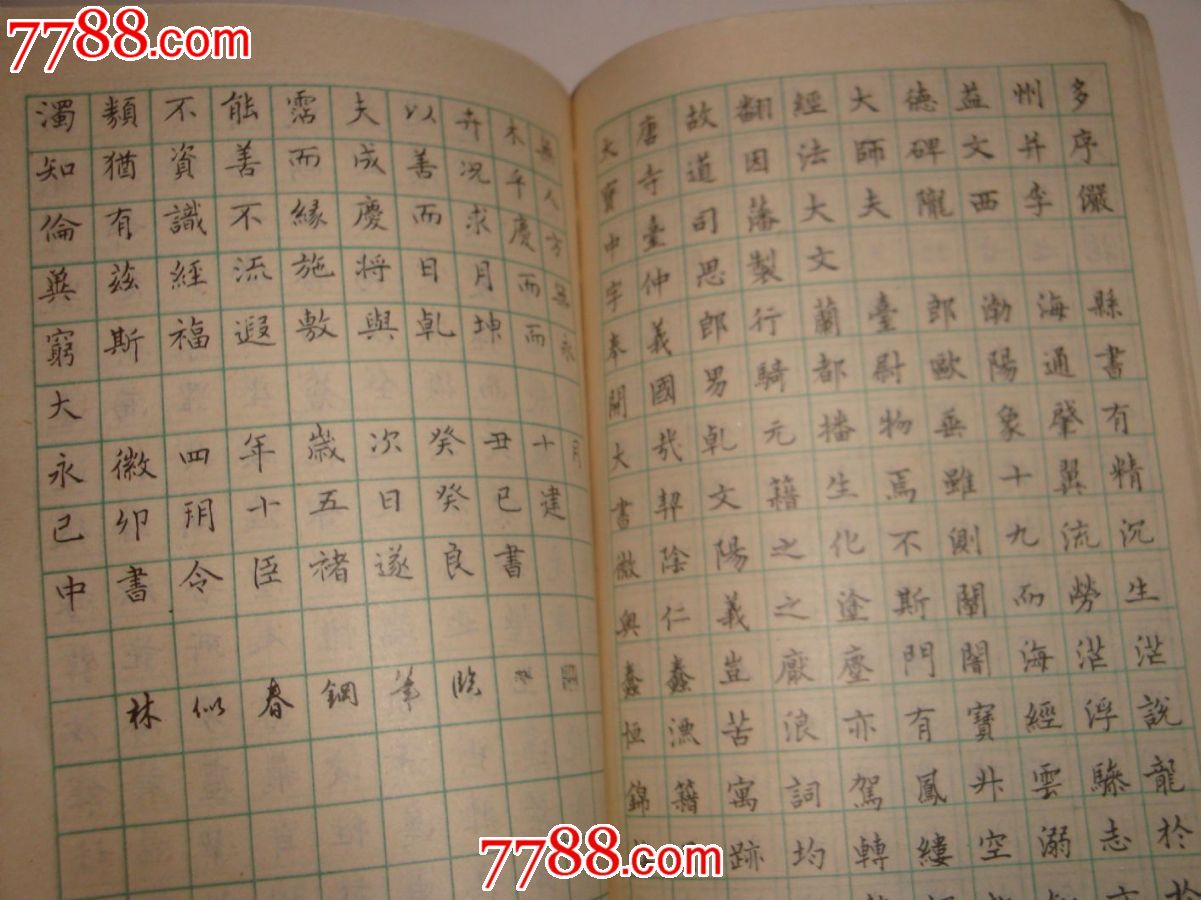 7788.com
7788.com
濁類不能霑夫以卉木無
知猶資善而成善況乎人
倫有識不緣慶而求慶方
冀茲經流施將日月而無
窮斯福遐敷與乾坤而永
大
永徽四年歲次癸丑十月
己卯玥十五日癸巳建
中書令臣褚遂良書
林似春鋼筆臨
大唐故翻經大德益州多
寶寺道因法師碑文并序
中臺司藩大夫隴西李儼
字仲思製文
奉義郎行蘭臺郎渤海縣
開國男騎都尉歐陽通書
大哉乾元播物垂象肇有
書契文籍生焉雖十翼精
微陰陽之化不測九流沉
奧仁義之塗斯闡而勞生
蠢蠢豈厭塵門闇海茫茫
恒漂苦浪亦有寶經浮說
錦籍寓詞駕鳳升雲驂龍
跡均轉縷空溺志於
7788.com